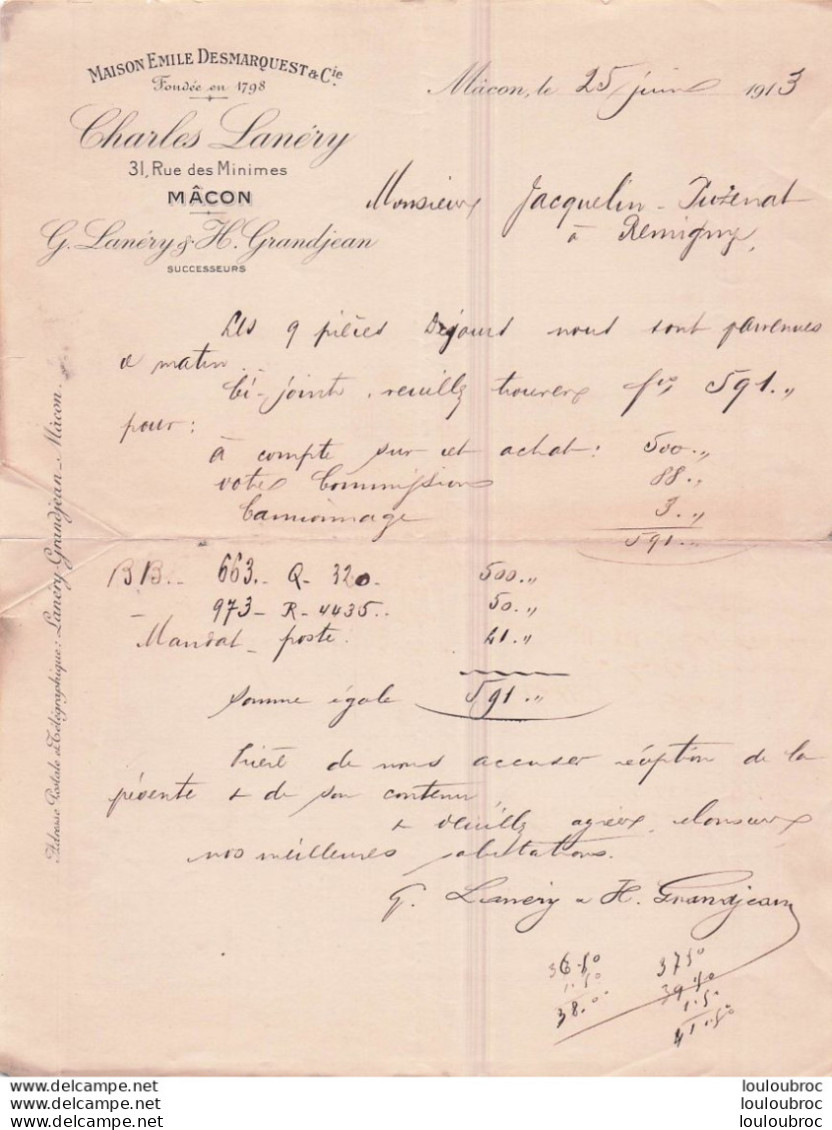 MAISON EMILE DESMARQUEST & Cie
Fondée en 1798
Charles Lanéry
31, Rue des Minimes
MÂCON
G. Lanéry & H. Grandjean
SUCCESSEURS
Mâcon, le 25 juin 1913
Monsieur Jacquelin-Puzenat
à Remigny,
Adresse Postale et Télégraphique: Lanéry-Grandjean_Mâcon.
Les 9 pièces Dejours nous sont parvenues
ce matin..
Ci-joint, veuillez trouver fcs 591.,,
pour:
à compte sur cet achat: 500.,,
votre Commission 88.,,
Camionnage 3.,,
591.,,
BB.. 663.- Q- 320 500.,,
- 973- R- 4435.. 50.,,
Mandat-poste. 41.,,
somme égale 591.,,
Prière de nous accuser réception de la
présente & de son contenu
& veuillez agréer, Monsieur
nos meilleures salutations.
G. Lanéry & H. Grandjean
36.50 37 50
1.50 39 40
38.00 1.50
41.50
Delcampe.net
louloubroc
louloubroc
louloubroc